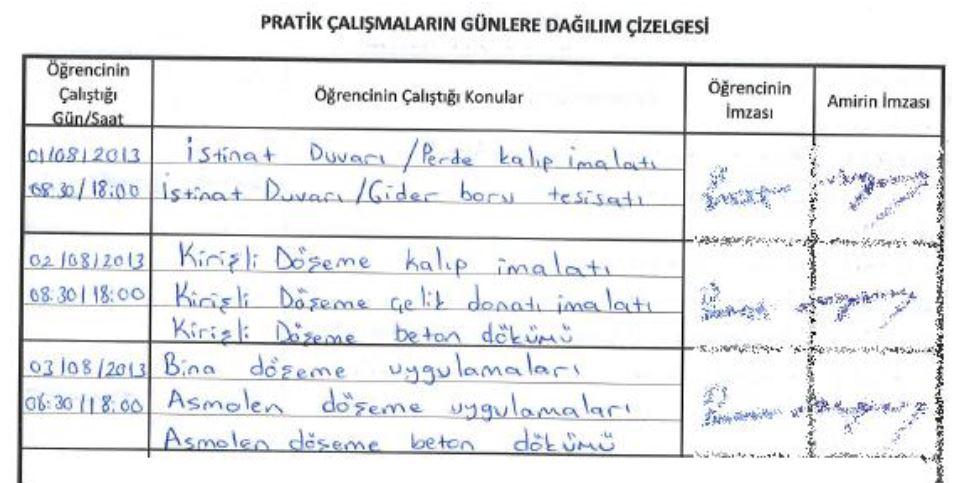 PRATİK ÇALIŞMALARIN GÜNLERE DAĞILIM ÇİZELGESİ
Öğrencinin Çalıştığı Gün/Saat
Öğrencinin Çalıştığı Konular
Öğrencinin İmzası
Amirin İmzası
01/08/2013 İstinat Duvarı / Perde kalıp imalatı
08:30/18:00 İstinat Duvarı / Gider boru tesisatı
02/08/2013 Kirişli Döşeme kalıp imalatı
08:30/18:00 Kirişli Döşeme çelik donatı imalatı
Kirişli Döşeme beton dökümü
03/08/2013 Bina döşeme uygulamaları
08:30/18:00 Asmolen döşeme uygulamaları
Asmolen döşeme beton dökümü